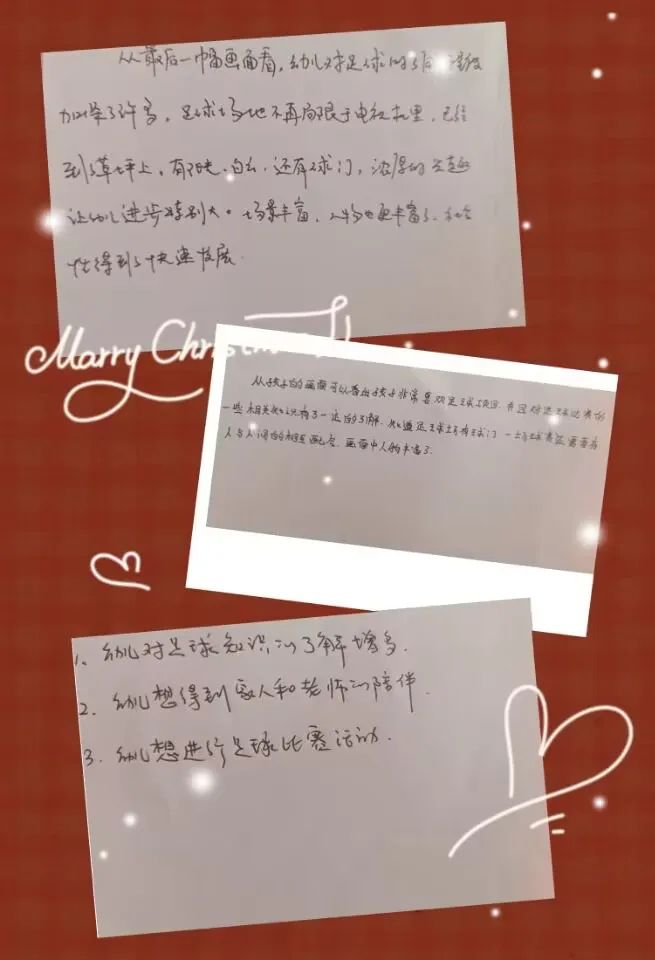 从最后一幅画面看,幼儿对足球的了解程度
加深了许多,足球场地不再局限于电视机里,已经
到了草坪上,有阳光、白云、还有球门,浓厚的兴趣
让幼儿进步特别大。场景丰富,人物也更丰富了,社会
性得到了快速发展.
Marry Christm
从孩子的画面可以看出孩子非常喜欢足球项目,并且对足球比赛的
一些相关知识有了一定的了解,知道足球场有球门,一场球赛是需要
人与人间的相互配合,画面中人物丰富了.
1、幼儿对足球知识的了解增多.
2、幼儿想得到家人和老师的陪伴.
3、幼儿想进行足球比赛活动.